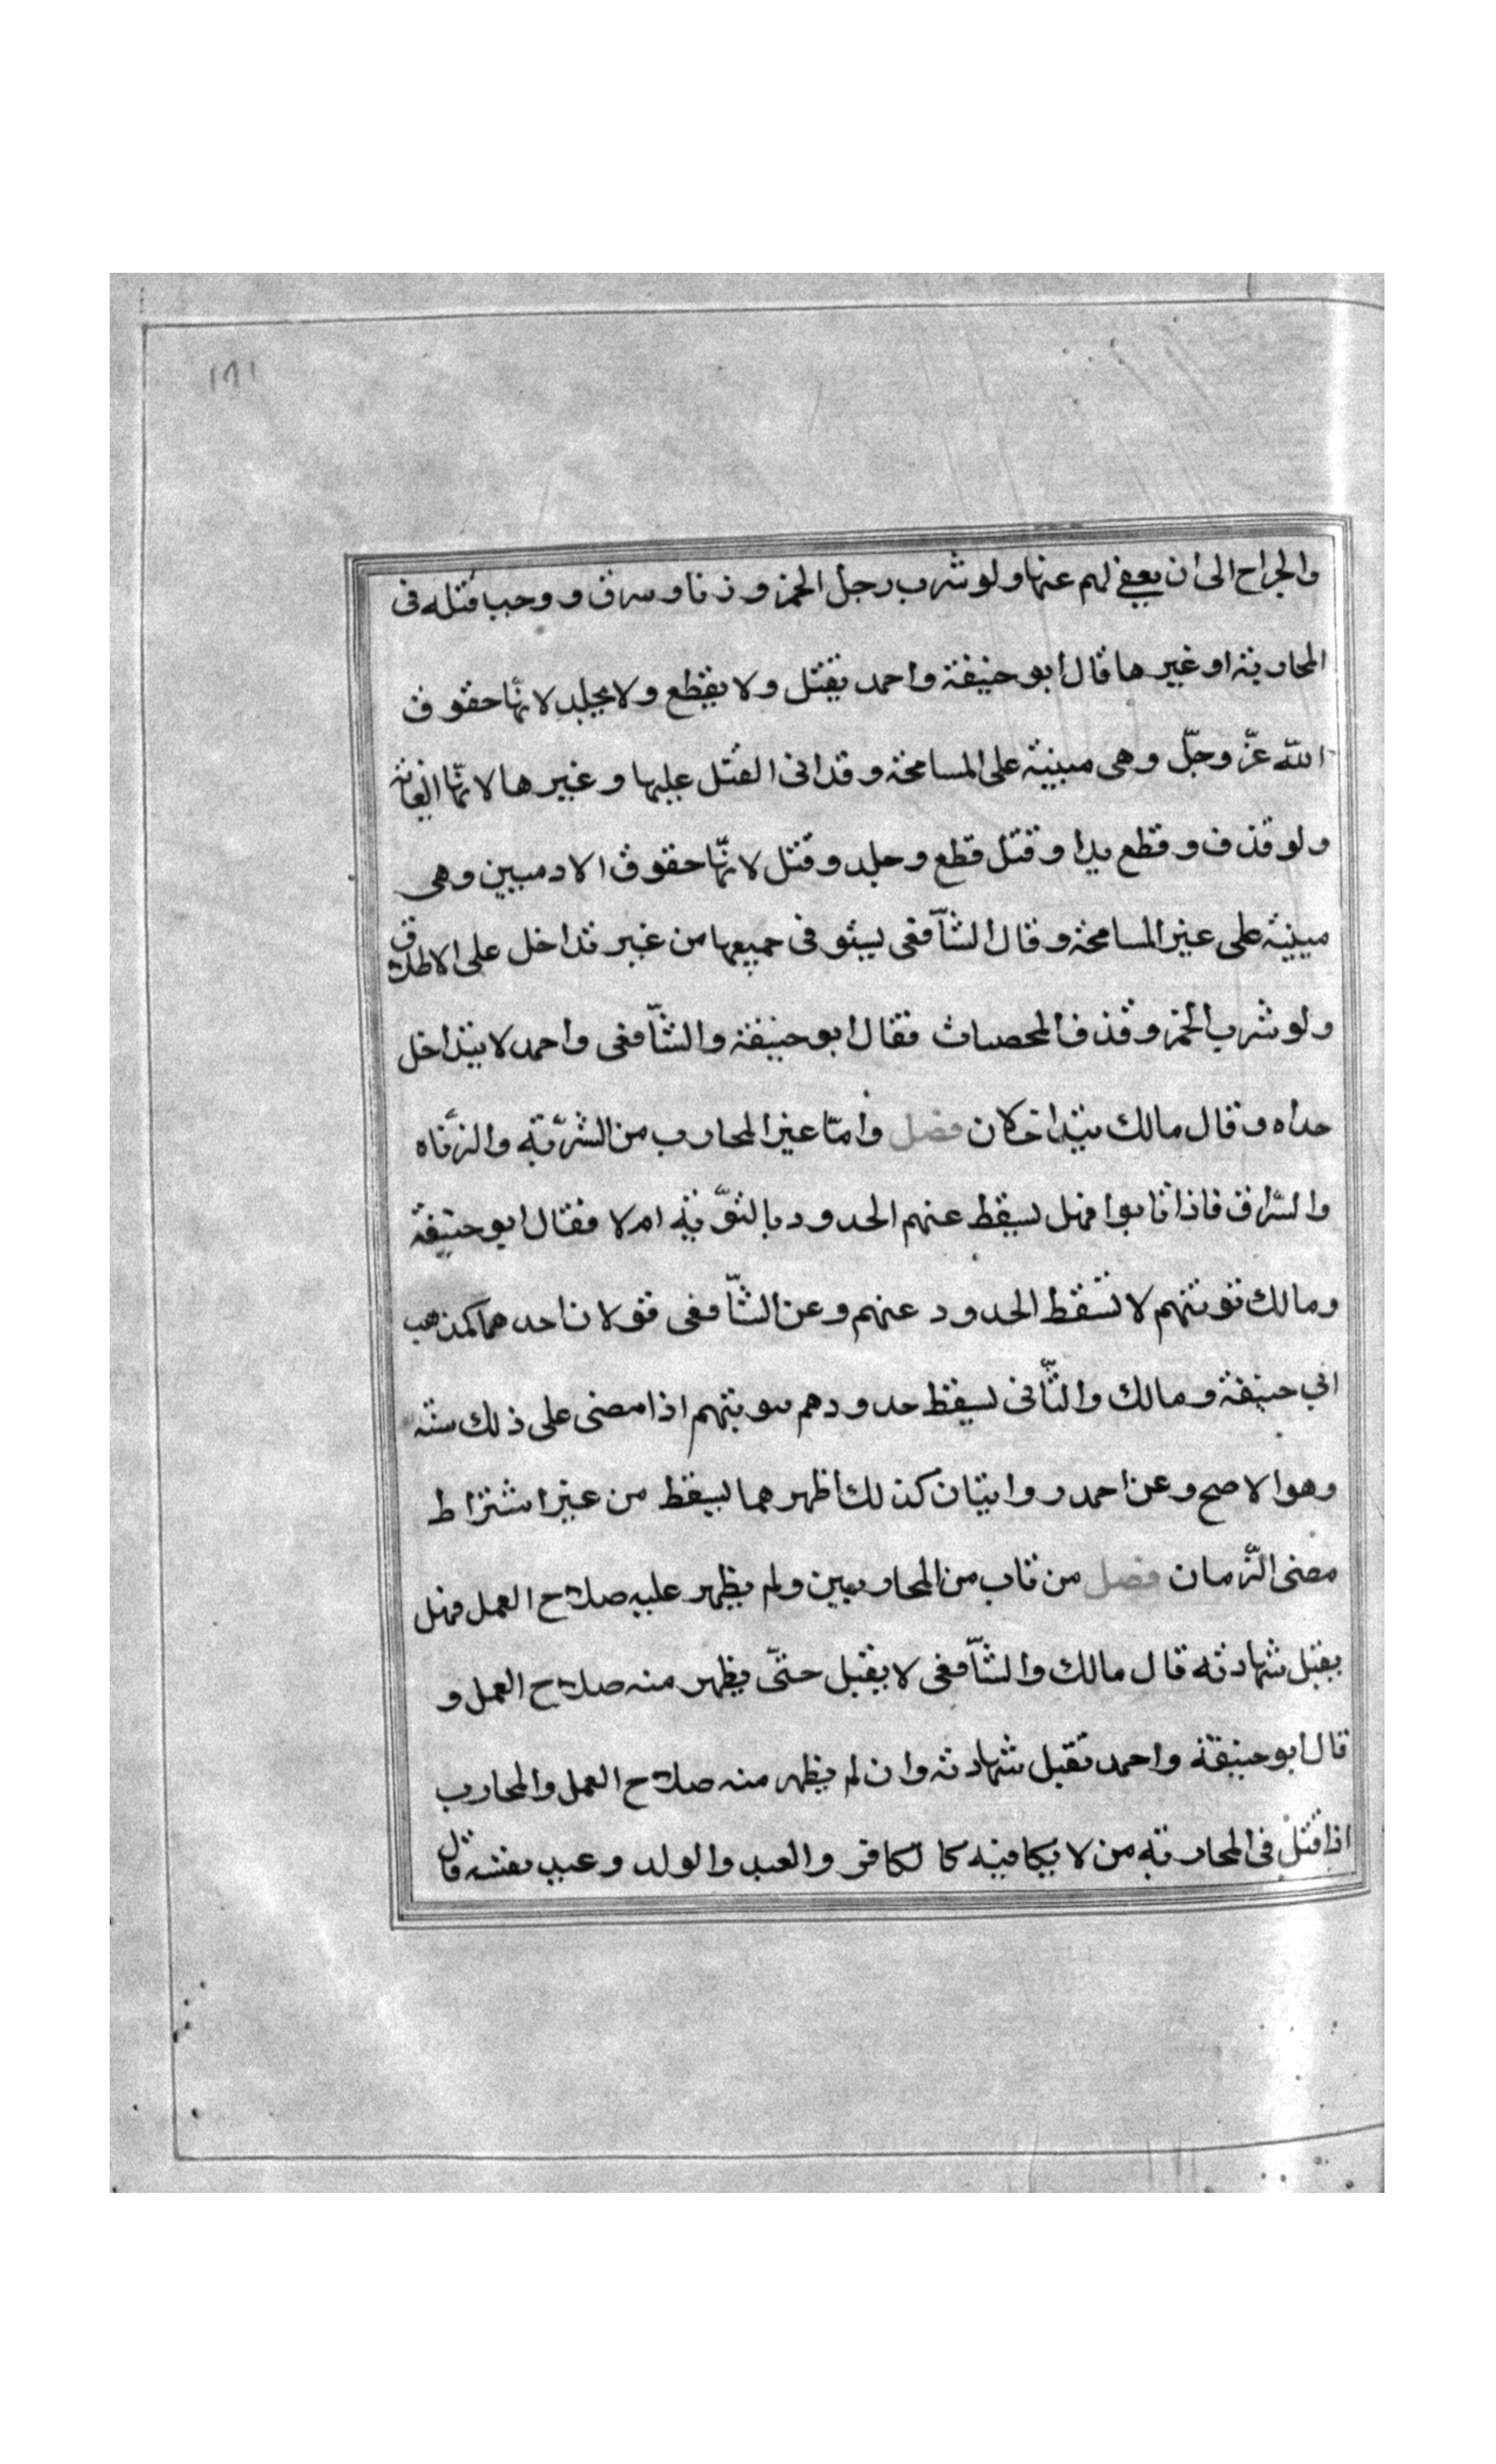 ١٧١
والجراح الى ان يعفى لهم عنها ولو شرب رجل الخمر و زنا وسرق و وجب قتله فى
المحاربة او غيرها قال ابو حنيفة واحمد يقتل ولا يقطع ولا يجلد لانّها حقوق
الله عزّ وجلّ وهى مبنية على المسامحة وقد اتى القتل عليها وغيرها لانّها الغاية
ولو قذف وقطع يدا وقتل قطع وجلد وقتل لانّها حقوق الادميين وهى
مبنية على غير المسامحة وقال الشّافعى يستوفى جميعها من غير تداخل على الاطلاق
ولو شرب الخمر وقذف المحصنات فقال ابو حنيفة والشّافعى واحمد لا يتداخل
حداه وقال مالك يتداخلان فصل وامّا غير المحارب من الشّربة والزّناه
والسّراق فاذا تابوا فهل يسقط عنهم الحدود بالتّوبة ام لا فقال ابو حنيفة
ومالك توبتهم لا تسقط الحدود عنهم وعن الشّافعى قولان احدهما كمذهب
ابي حنيفة ومالك والثّانى يسقط حدودهم بتوبتهم اذا مضى على ذلك سنة
وهو الاصح وعن احمد روايتان كذلك اظهرهما يسقط من غير اشتراط
مضى الزّمان فصل من تاب من المحاربين ولم يظهر عليه صلاح العمل فهل
يقبل شهادته قال مالك والشّافعى لا يقبل حتّى يظهر منه صلاح العمل و
قال ابو حنيفة واحمد تقبل شهادته وان لم يظهر منه صلاح العمل والمحارب
اذا قتل فى المحاربة من لا يكافيه كا لكافر والعبد والولد وعبد نفسه قال